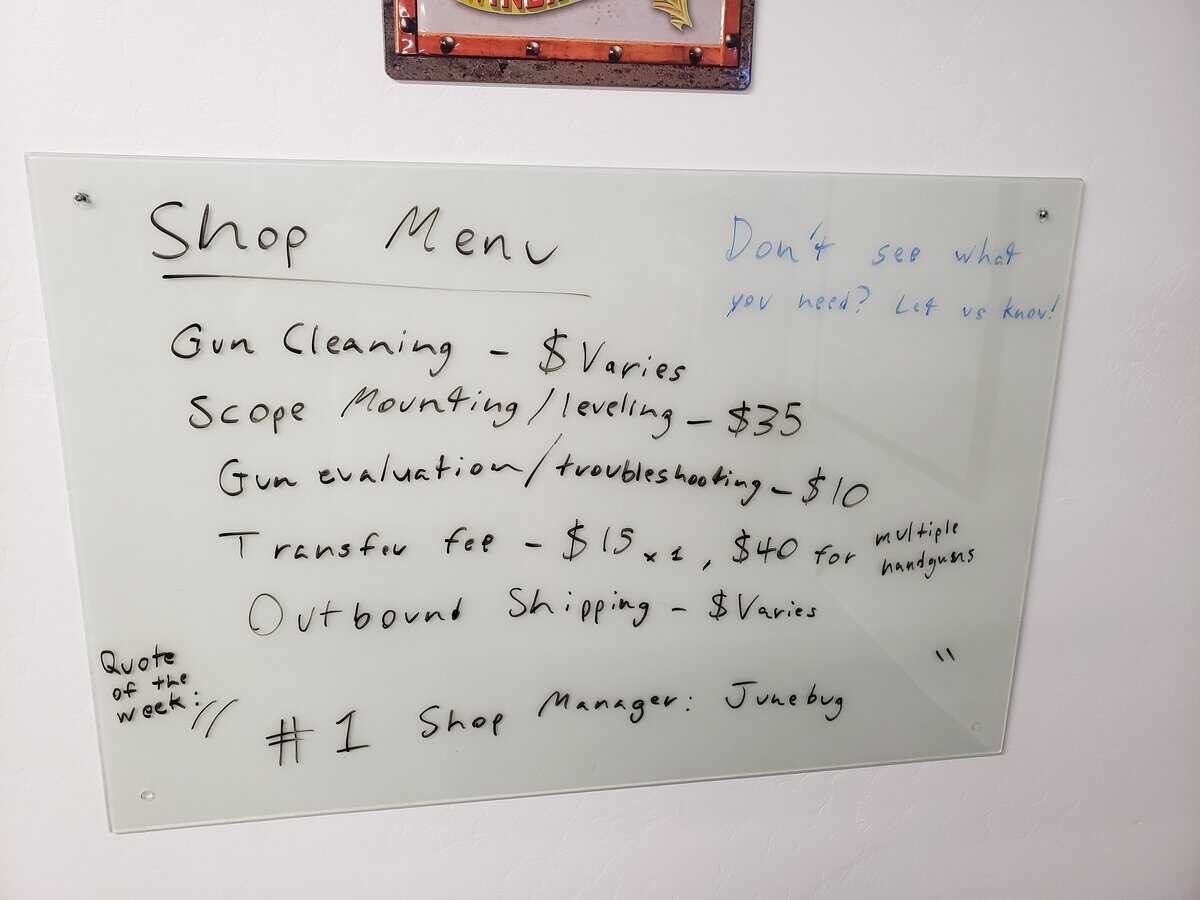 Shop Menu
Don't see what
you need? Let us know!
Gun Cleaning - $Varies
Scope Mounting/leveling - $35
Gun evaluation/troubleshooting - $10
Transfer fee - $15 x 1, $40 for multiple
handguns
Outbound Shipping - $Varies
Quote
of the
week: "
#1 Shop Manager: Junebug "